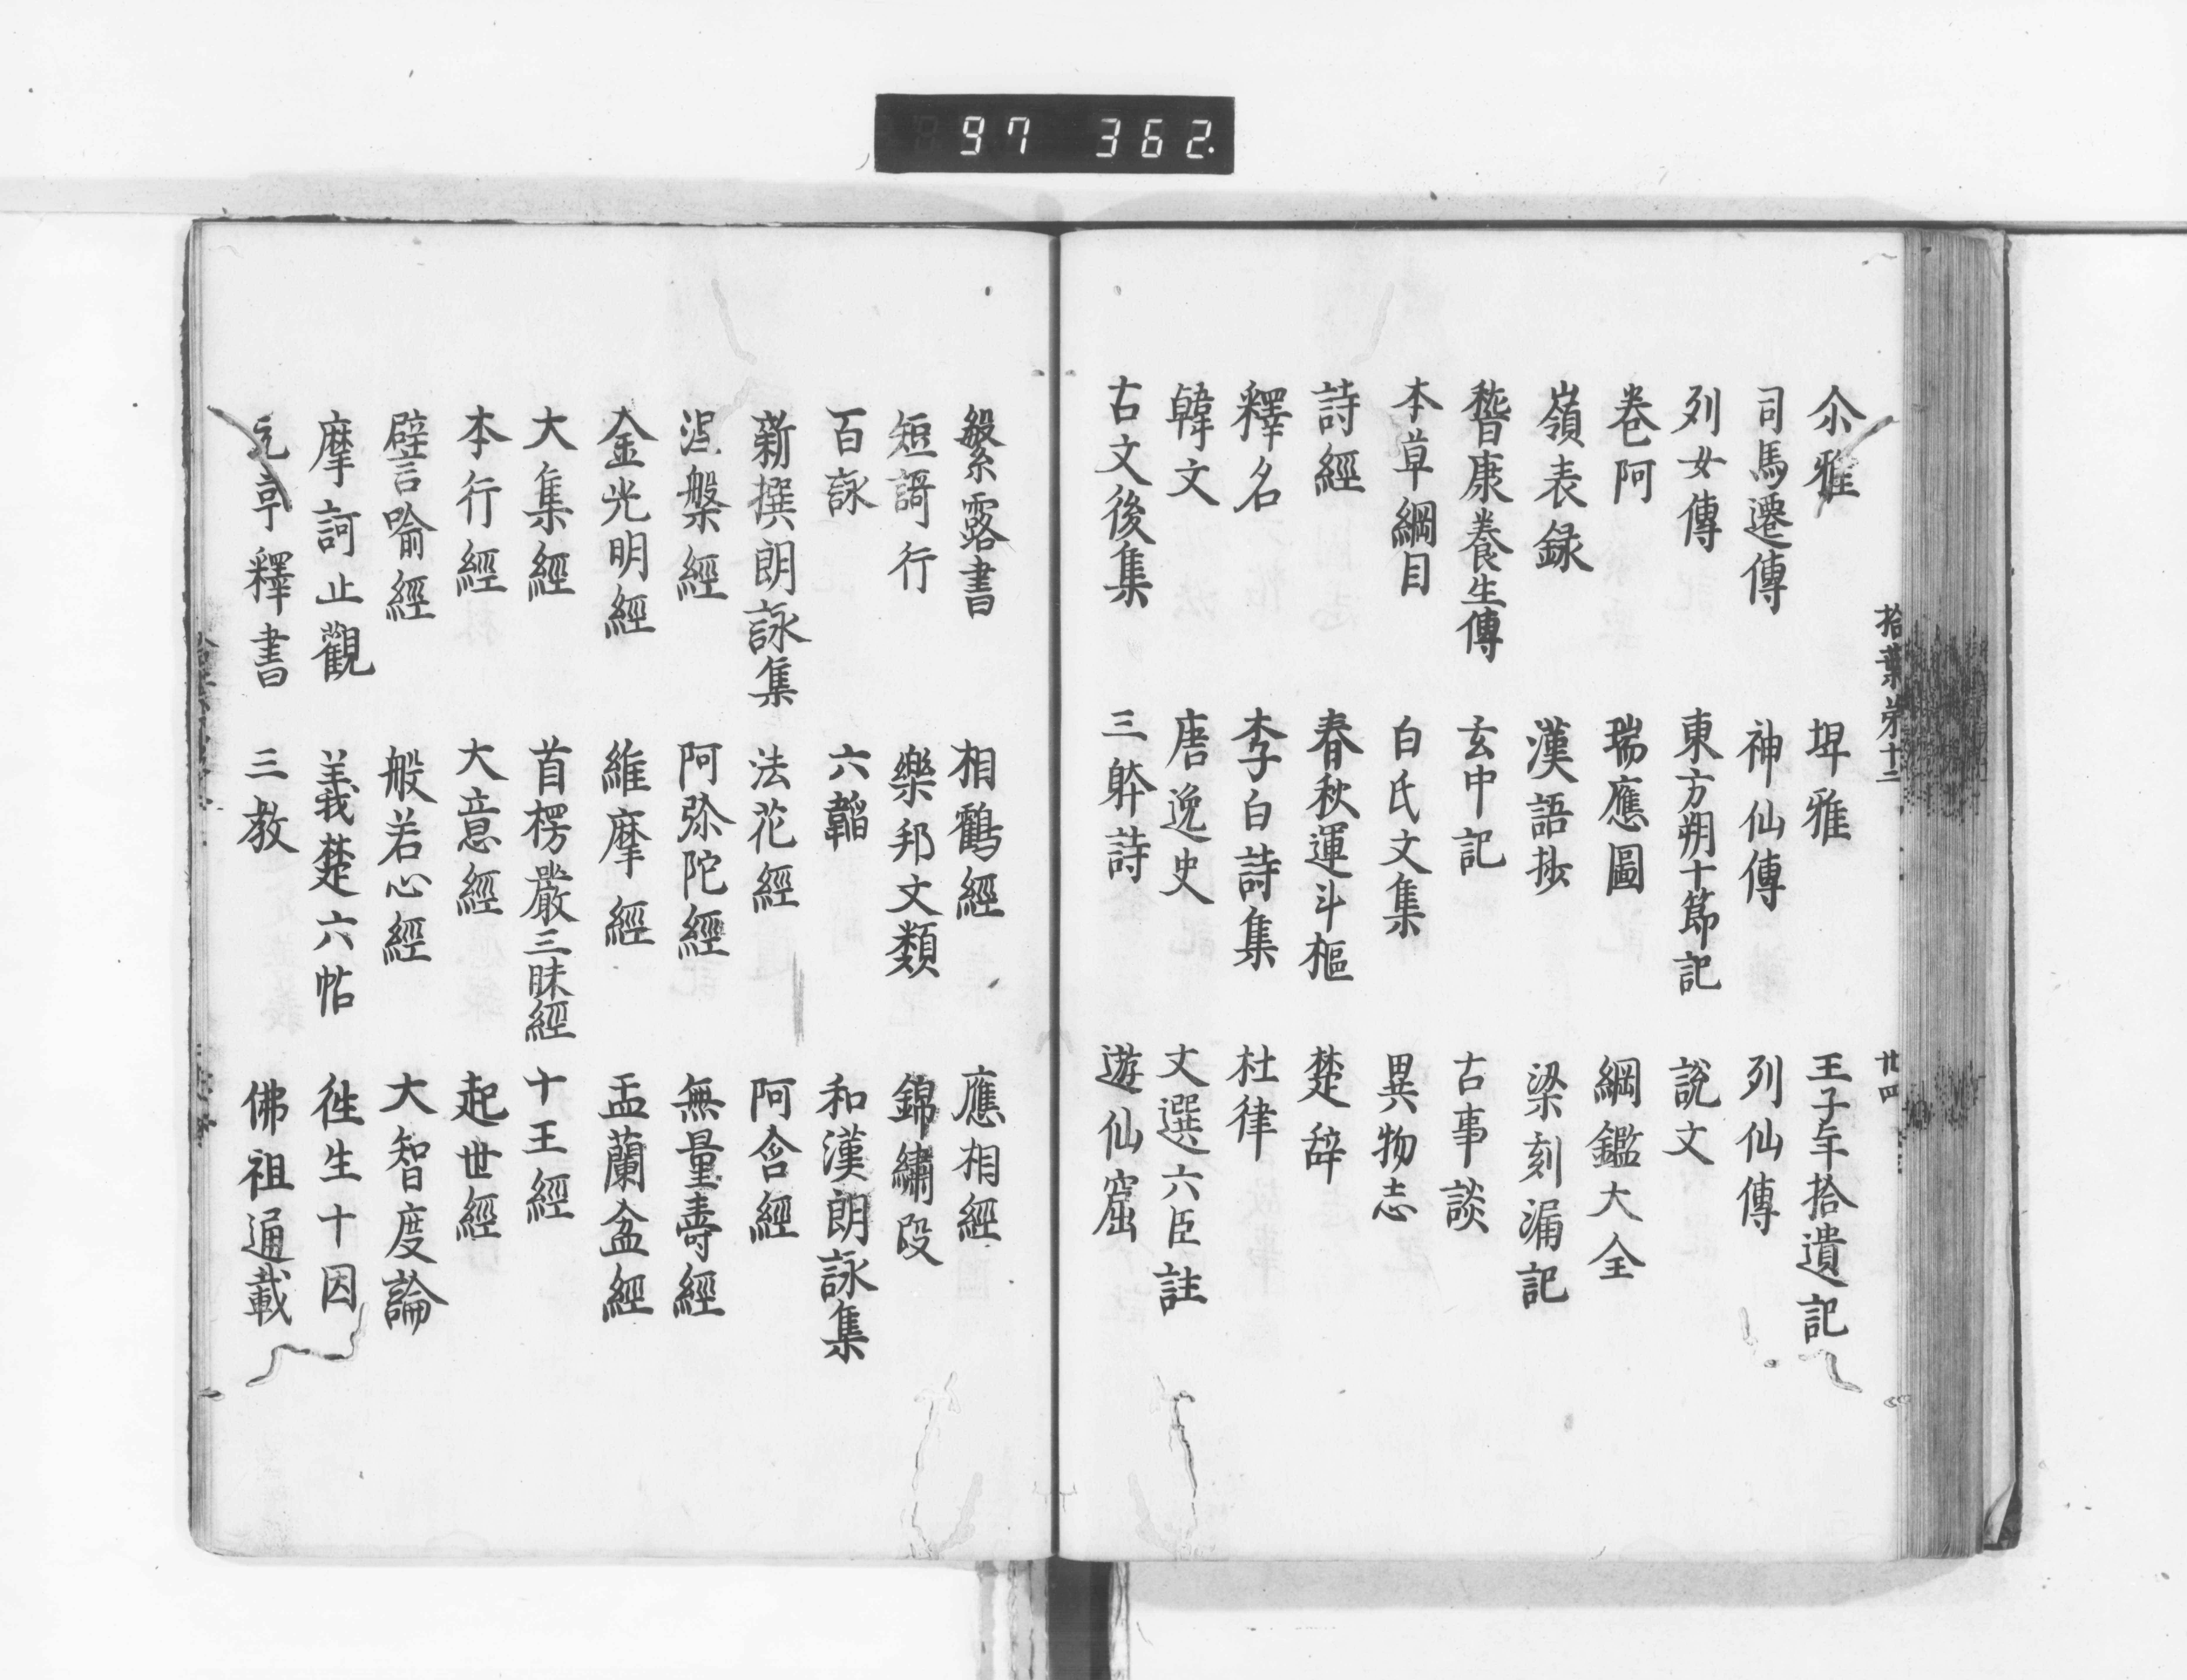 97 362.
拾葉第十二 廿四
尒雅 埤雅 王子年拾遺記
司馬遷傳 神仙傳 列仙傳
列女傳 東方朔十節記 說文
巻阿 瑞應圖 綱鑑大全
嶺表録 漢語抄 梁刻漏記
嵆康養生傳 玄中記 古事談
本草綱目 白氏文集 異物志
詩經 春秋運斗樞 楚辞
釋名 李白詩集 杜律
韓文 唐逸史 文選六臣註
古文後集 三躰詩 遊仙窟
繁露書 相鶴經 應相經
短謌行 樂邦文類 錦繡段
百詠 六韜 和漢朗詠集
新撰朗詠集 法花經 阿含經
涅槃經 阿弥陀經 無量壽經
金光明經 維摩經 盂蘭盆經
大集經 首楞嚴三昧經 十王經
本行經 大意經 起世經
譬喻經 般若心經 大智度論
摩訶止觀 義楚六帖 徃生十因
元亨釋書 三教 佛祖通載